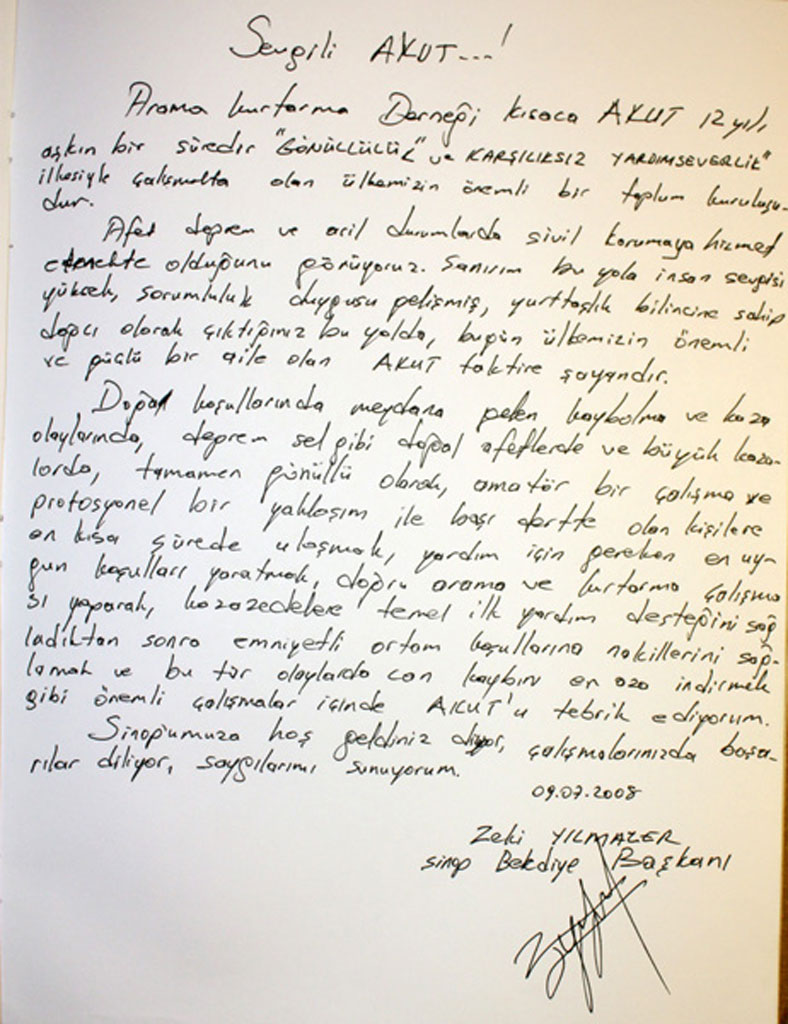 Sevgili AKUT...!
Arama kurtarma Derneği kısaca AKUT 12 yılı
aşkın bir süredir "GÖNÜLLÜLÜK" ve KARŞILIKSIZ YARDIMSEVERLİK"
ilkesiyle çalışmakta olan ülkemizin önemli bir toplum kuruluşu-
dur.
Afet deprem ve acil durumlarda sivil korumaya hizmet
etmekte olduğunu görüyoruz. Sanırım bu yola insan sevgisi
yüksek, sorumluluk duygusu gelişmiş, yurttaşlık bilincine sahip
dağcı olarak çıktığınız bu yolda, bugün ülkemizin önemli
ve güçlü bir aile olan AKUT taktire şayandır.
Doğal koşullarında meydana gelen kaybolma ve kaza
olaylarında, deprem sel gibi doğal afetlerde ve büyük kaza-
larda, tamamen gönüllü olarak, amatör bir çalışma ve
profosyonel bir yaklaşım ile başı dertte olan kişilere
en kısa sürede ulaşmak, yardım için gereken en uy-
gun koşulları yaratmak, doğru arama ve kurtarma çalışma
sı yaparak, kazazedelere temel ilk yardım desteğini sağ
ladıktan sonra emniyetli ortam koşullarına nakillerini sağ-
lamak ve bu tür olaylarda can kaybını en aza indirmek
gibi önemli çalışmalar içinde AKUT'u tebrik ediyorum.
Sinop'umuza hoş geldiniz diyor, çalışmalarınızda başa-
rılar diliyor, saygılarımı sunuyorum.
09.07.2008
Zeki YILMAZER
Sinop Belediye Başkanı